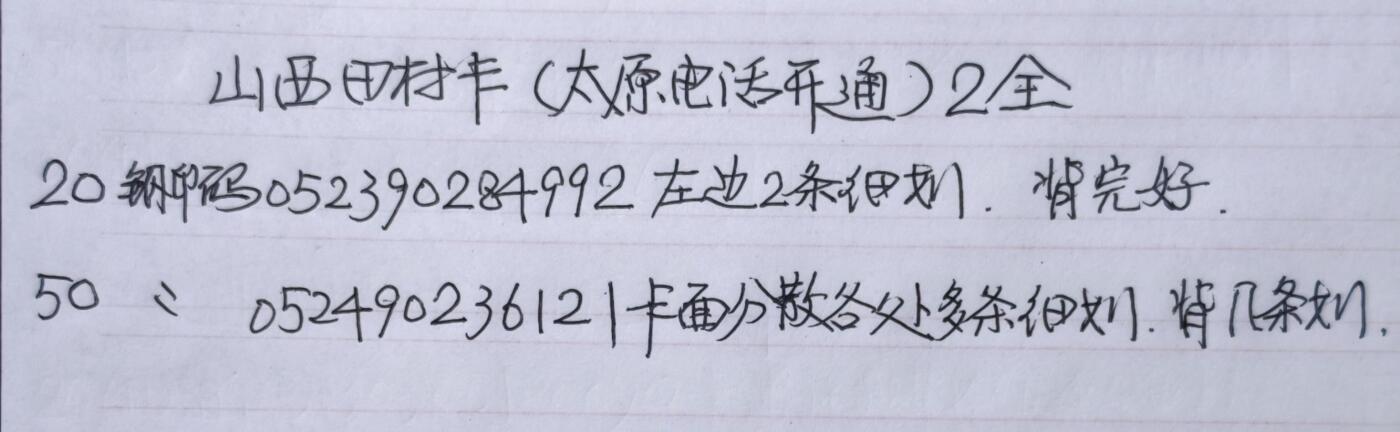 山西田村卡（太原电话开通）2全
20 钢印码052390284992 左边2条细划. 背完好.
50 〃 052490236121卡面分散各处多条细划.背几条划.